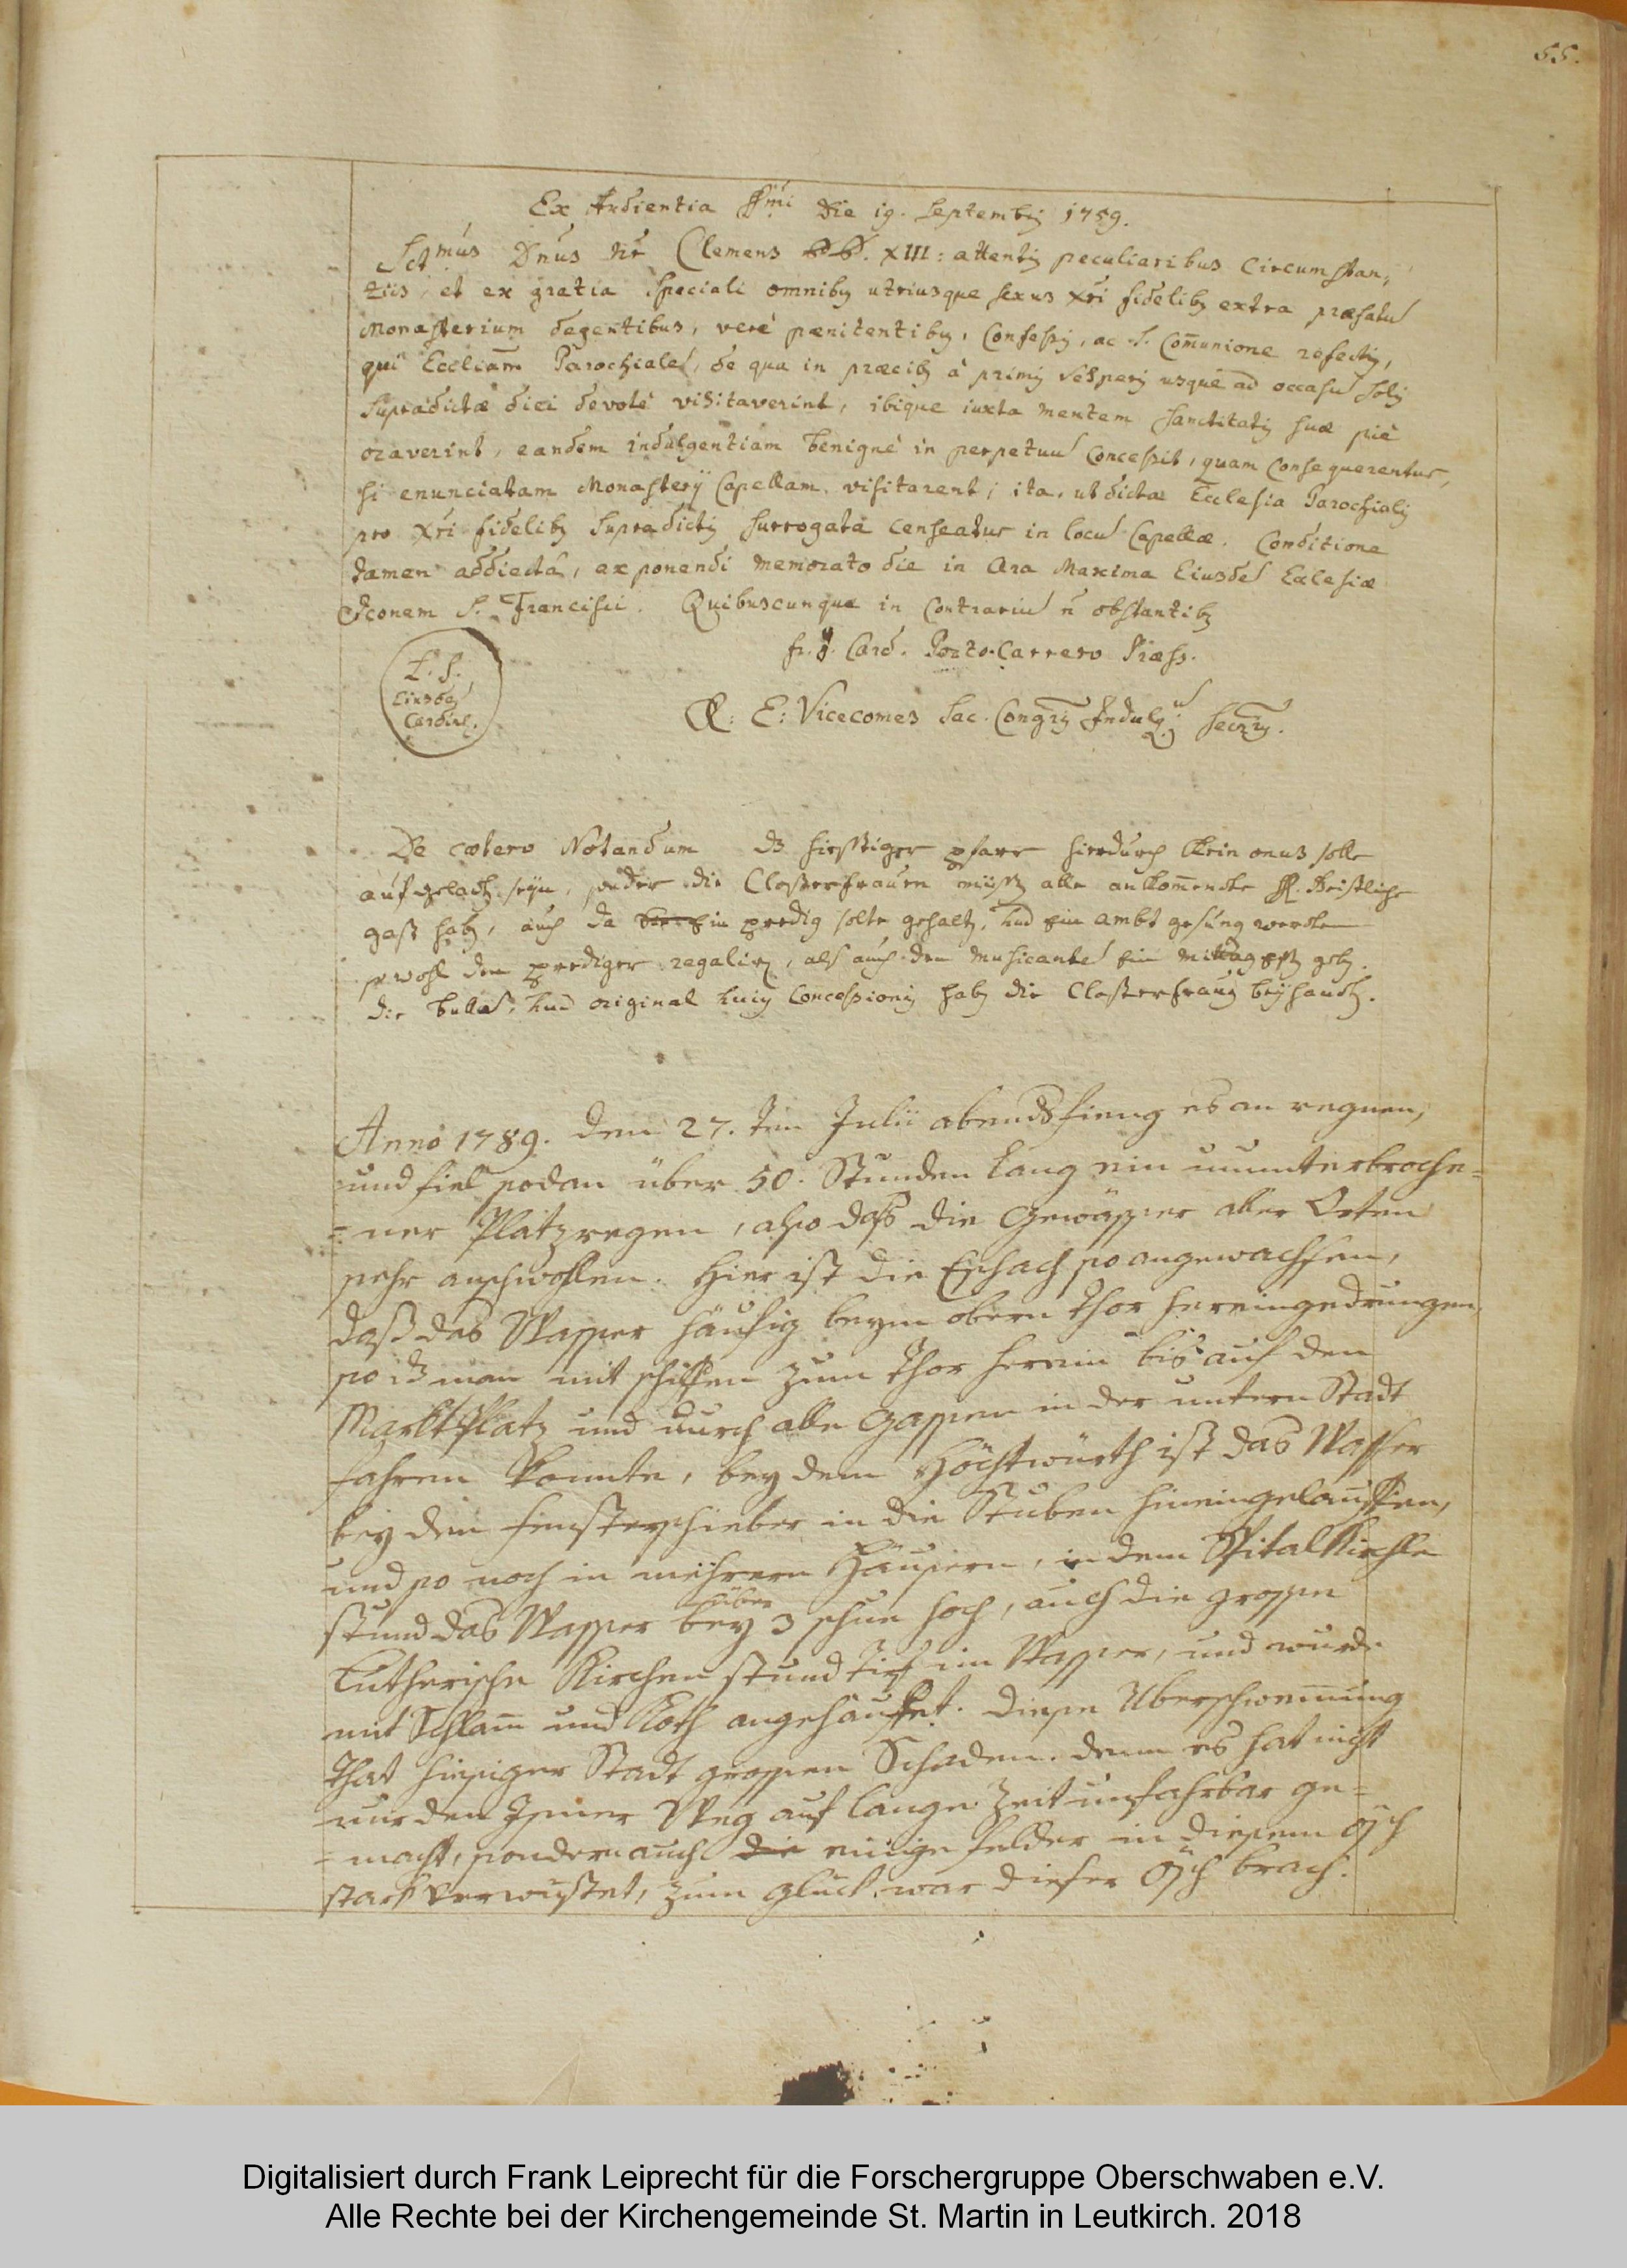 55.
Ex Audientia SSmi Die 19. Septembris 1759.
Sctmus Dnus nr Clemens PP. XIII: attentis peculiaribus circumstan,,
tiis, et ex gratia speciali omnibus utriusque sexus Xri fidelibus extra præfatu
Monasterium degentibus, verè pænitentibus, confessis, ac S. Com̄unione refectis,
qui Eccliam Parochiale, de qua in præcibus à primis vesperis usque ad occasu solis
supradictæ diei devotè visitaverint, ibique iuxta mentem Sanctitatis suæ piè
oraverint, eandem indulgentiam benignè in perpetuu concessit, quam consequerentur,
si enunciatam Monasterÿ Capellam visitarent; ita, ut dicta Ecclesia Parochialis
pro Xri fidelibus supradictis surrogata censeatur in locu Capellæ. Conditione
tamen addiectâ, exponendi memorato die in Ara Maxima Eiusde Ecclesiæ
Iconem S. Francisci. Quibuscunque in contrariu n̄ obstantibus
fr. J. Card. Porto-Carrero Præf.
L. S.
Eiusde
Cardinl.
E: Vicecomes Sac. Congris Indulg: Secris.
De cœtero Notandum dz hiesstiger pfarr hierdurch kein onus solle
aufgeladen seyn, sonder die Closterfrauen müssen alle ankom̄ende HH. Geistliche
gast haben, auch da ein predig solte gehalten, und ein ambt gesung werden
sowohl den prediger regalieren, als auch den Musicanten ein mittag essen geben.
die bulla, und original huius Concessionis haben die Closterfrauen beyhanden.
Anno 1789. den 27.ten Julii abends fieng es an regnen,
und fiel sodan über 50. Stunden lang ein ununterbroche=
=ner Platzregen, also daß die Gewässer aller Orten
sehr anschwollen. Hier ist die Eschach so angewachsen,
daß das Wasser häufig beym obern Thor hereingedrungen,
so dz man mit schiffen zum Thor herein bis auf den
Marktplatz und durch alle Gassen in der untern Stadt
fahren konnte, bey dem Höchstwürth ist das Wasser
bey den fensterschieber in die Stuben hineingelauffen,
und so noch in mehrern Häusern, in dem Spitalkirchle
über
stund das Wasser bey 3 schue hoch, auch die grosse
Lutherische Kirchen stund tief im Wasser, und wurde
mit Schlam̄ und Koth angehäufet. Diese Überschwem̄ung
that hiesiger Stadt grossen Schaden. denn es hat nicht
nur den Isner Weg auf lange Zeit unfahrbar ge=
=macht, sondern auch die einige felder in diesem Ösch
stark verwüstet, zum Glück war dieser Ösch brach.
Digitalisiert durch Frank Leiprecht für die Forschergruppe Oberschwaben e.V.
Alle Rechte bei der Kirchengemeinde St. Martin in Leutkirch. 2018